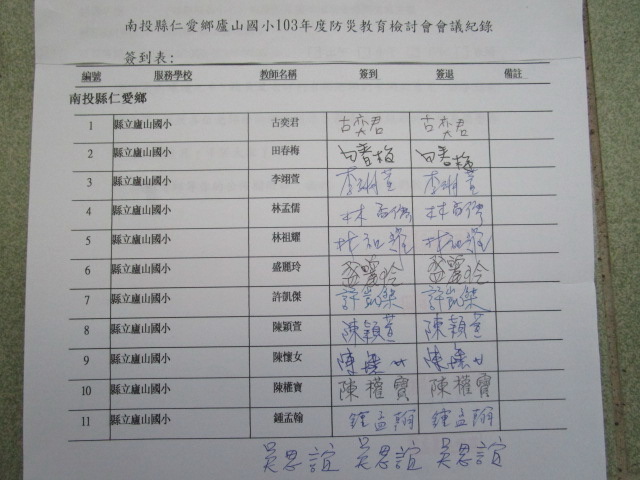 南投縣仁愛鄉廬山國小103年度防災教育檢討會會議紀錄
簽到表:
編號 服務學校 教師名稱 簽到 簽退 備註
南投縣仁愛鄉
1 縣立廬山國小 古奕君 古奕君 古奕君
2 縣立廬山國小 田春梅 田春梅 田春梅
3 縣立廬山國小 李翊萱 李翊萱 李翊萱
4 縣立廬山國小 林孟儒 林孟儒 林孟儒
5 縣立廬山國小 林祖耀 林祖耀 林祖耀
6 縣立廬山國小 盛麗玲 盛麗玲 盛麗玲
7 縣立廬山國小 許凱傑 許凱傑 許凱傑
8 縣立廬山國小 陳穎萱 陳穎萱 陳穎萱
9 縣立廬山國小 陳懷女 陳懷女 陳懷女
10 縣立廬山國小 陳權寶 陳權寶 陳權寶
11 縣立廬山國小 鍾孟翰 鍾孟翰 鍾孟翰
吳思誼 吳思誼 吳思誼